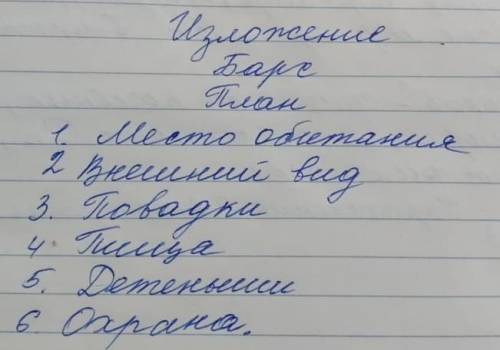 Изложение
Барс
План
1. Место обитания
2 Внешний вид
3. Повадки
4. Пища
5. Детеныши
6. Охрана.